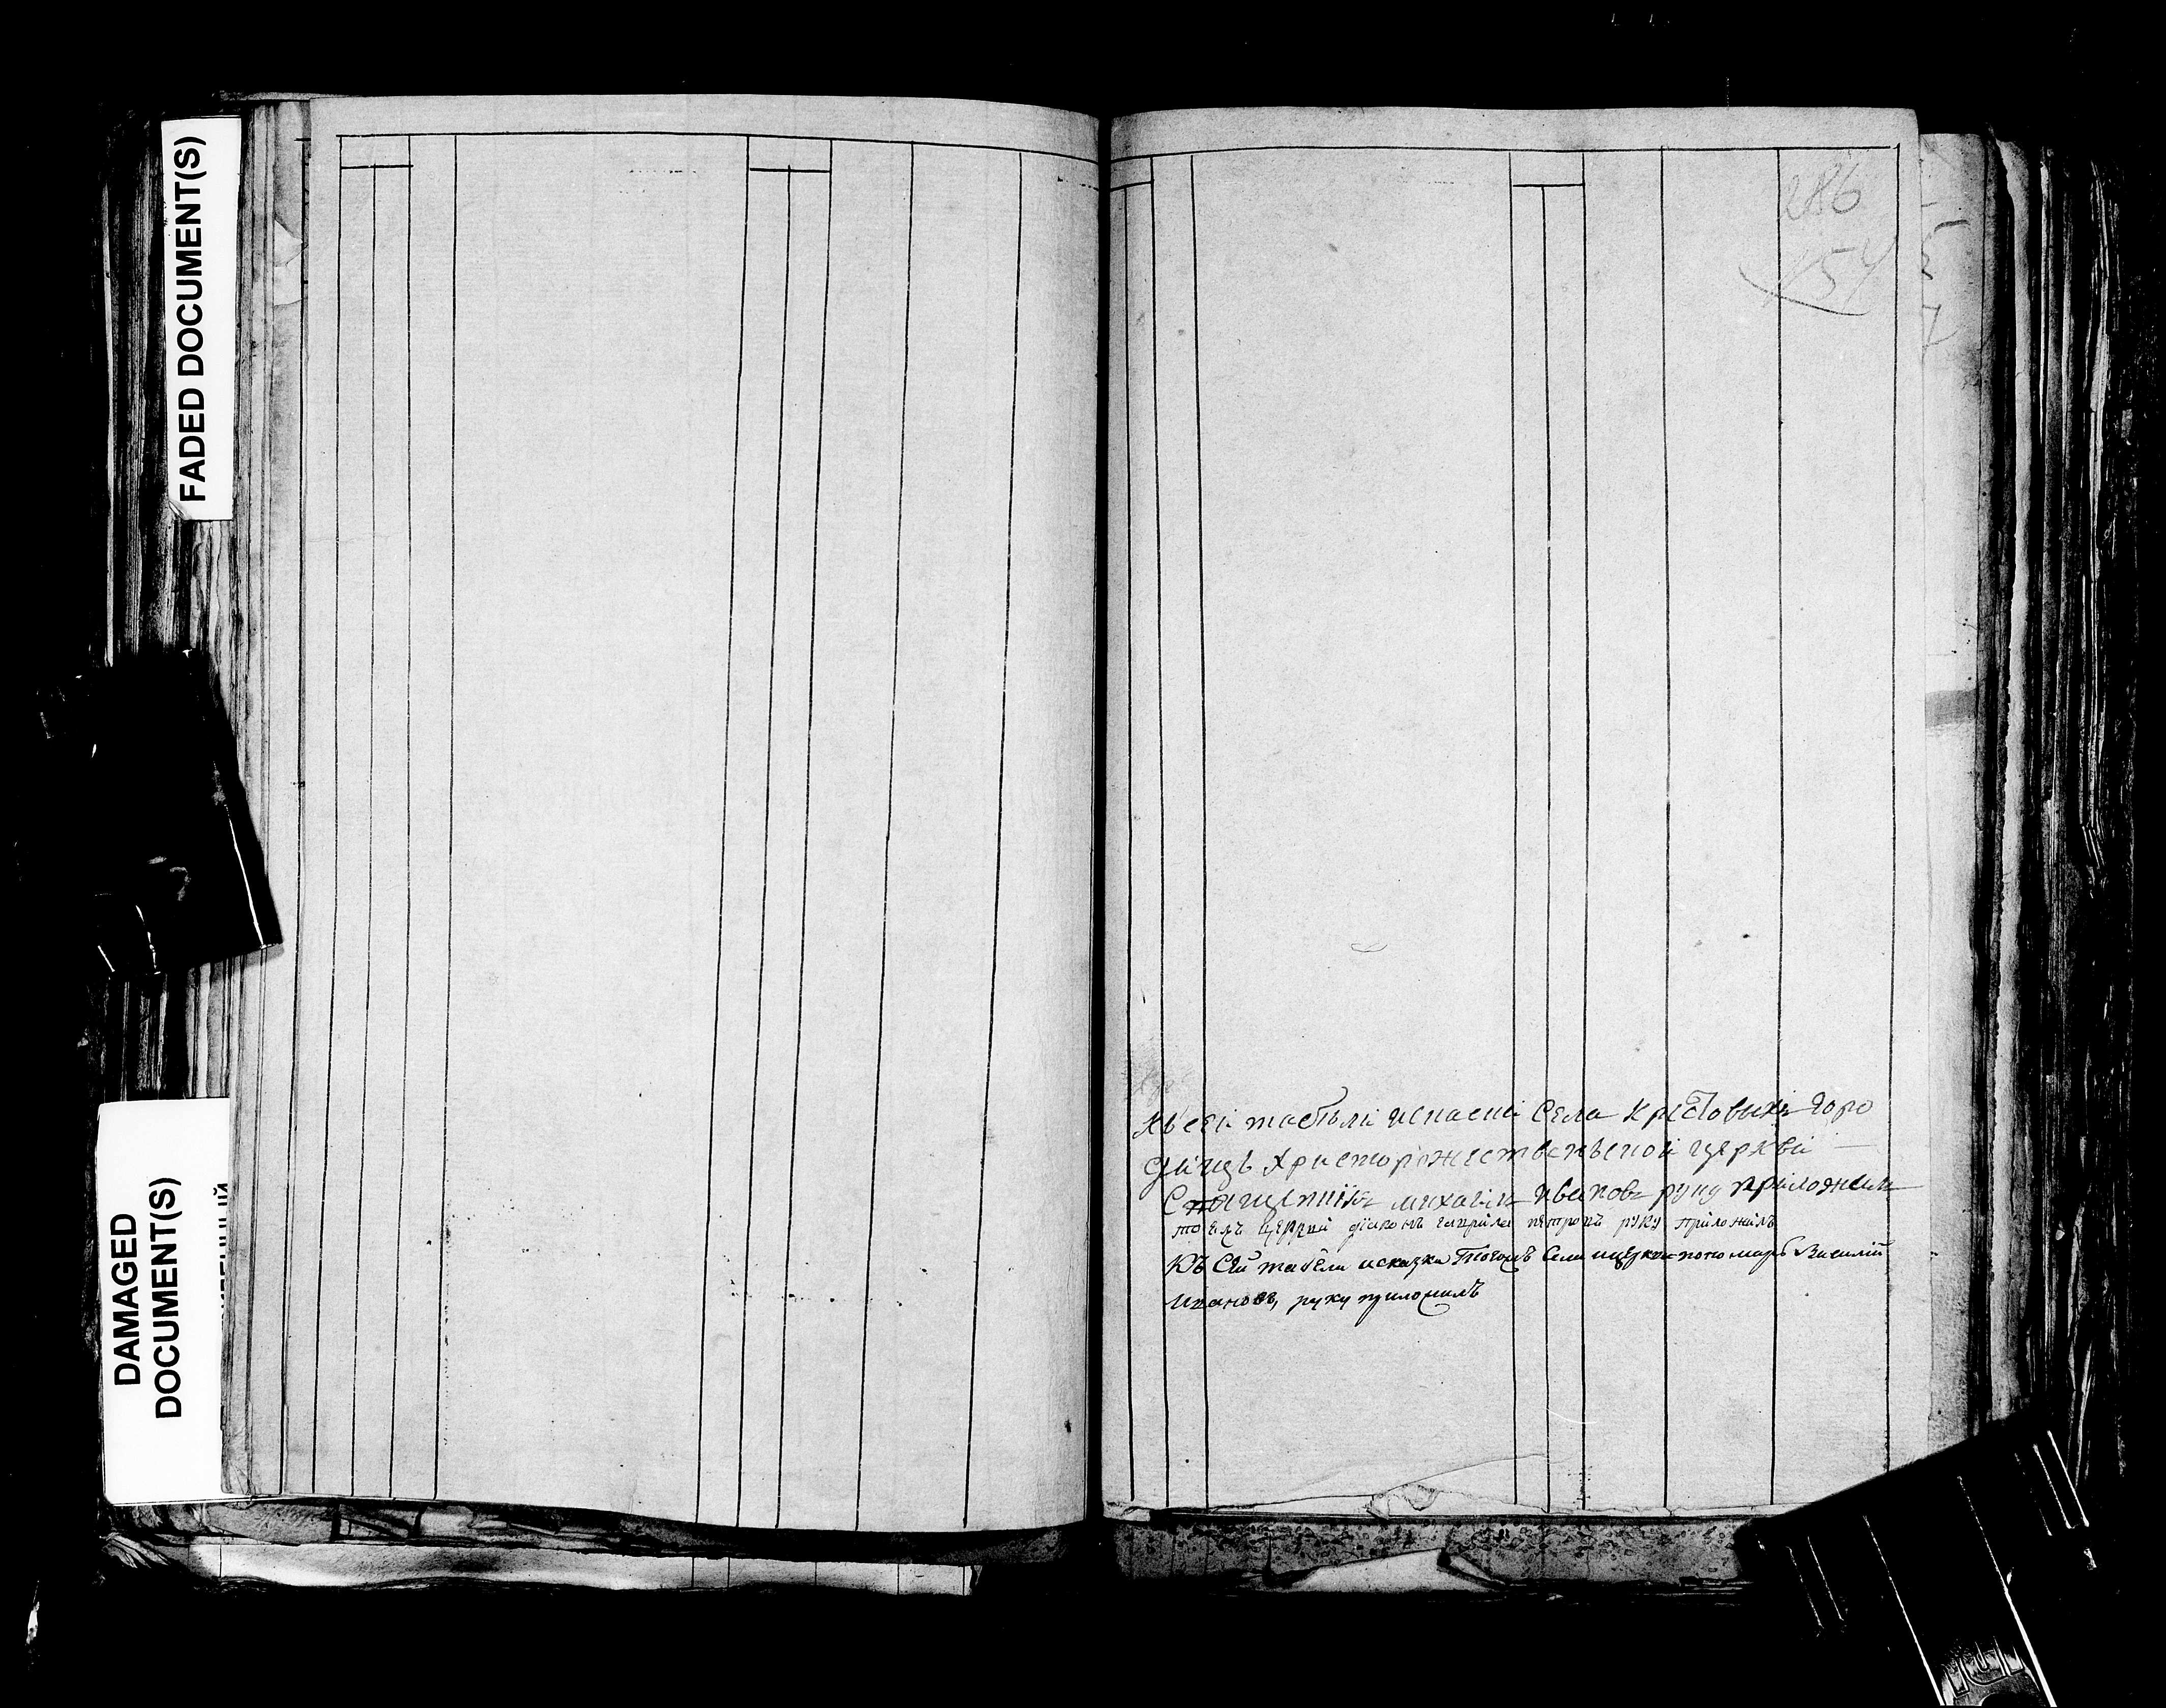 FADED DOCUMENT(S)
DAMAGED
DOCUMENT(S)
286
154
Къ сеи табѣли Села Крестовыхъ горо
дищъ Христорожественской церкви
Священникъ михаилъ Ивановъ руку приложилъ
тоежъ церкви діаконъ гаврила петровъ руку приложилъ
Къ Сей табели исказки Тогожъ Села ицеркви пономарь Василий
Ивановъ, руку приложилъ